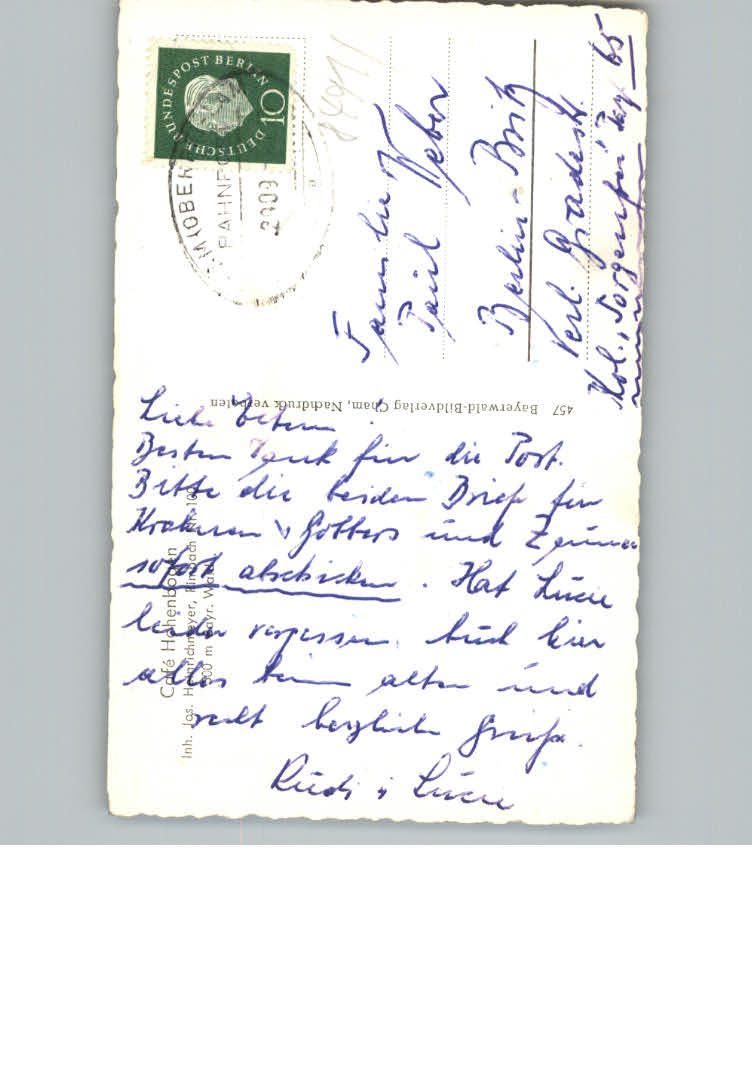 DEUTSCHE BUNDESPOST BERLIN
10
BAHNPO
Familie
Paul Weber
Berlin-Britz
Verl. Gradestr.
Kol. "Sorgenfrei" 65
457 Bayerwald-Bildverlag Cham, Nachdruck verboten
Café Hohenbogen
Inh. Jos. Heinrichmeyer, Rimbach
m Bayr. Wald
Liebe Eltern!
Besten Dank für die Post.
Bitte die beiden Briefe für
und
sofort abschicken. Hat Lucie
leider vergessen. Auch hier
alles beim alten und
recht herzliche Grüße.
Rudi u Lucie